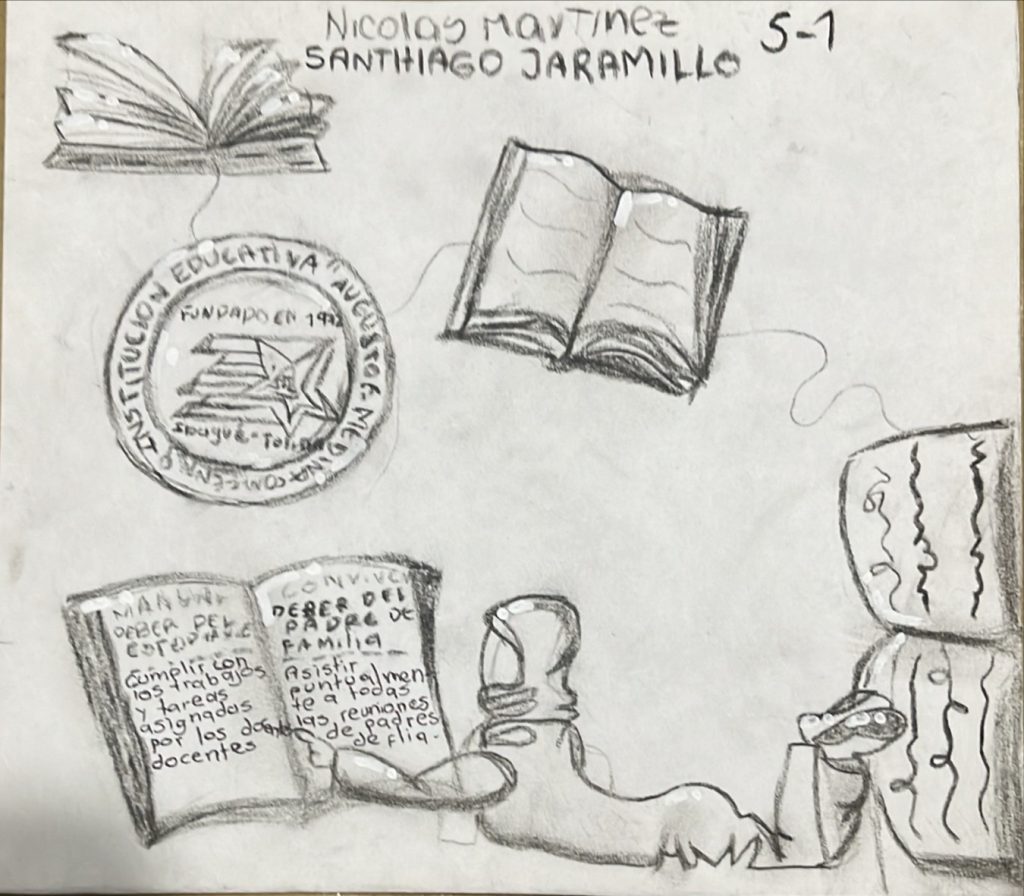 Nicolas Martinez
SANTHIAGO JARAMILLO
5-1
INSTITUCION EDUCATIVA "AUGUSTO E. MEDINA" COMFENALCO
FUNDADO EN 19
Ibagué - Tolima
MANUAL
DEBER DEL
ESTUDIANTE
Cumplir con
los trabajos
y tareas
asignados
por los
docentes
CONVIVENCI
DEBER DEL
PADRE DE
FAMILIA
Asistir
puntualmen
te a todas
las reuniones
de padres
de flia.